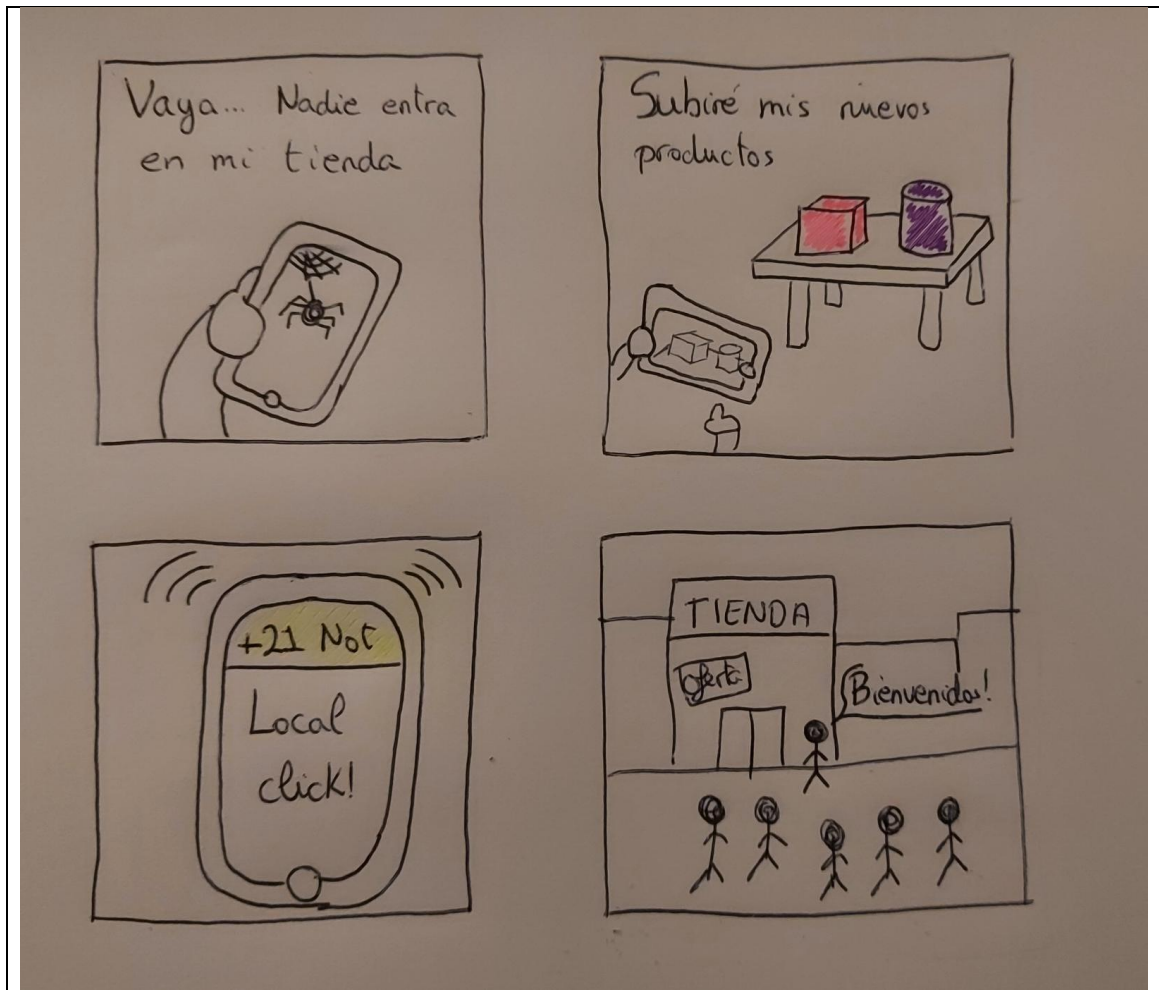 Vaya... Nadie entra
en mi tienda
Subiré mis nuevos
productos
+21 Not
Local
click!
TIENDA
oferta
Bienvenidos!